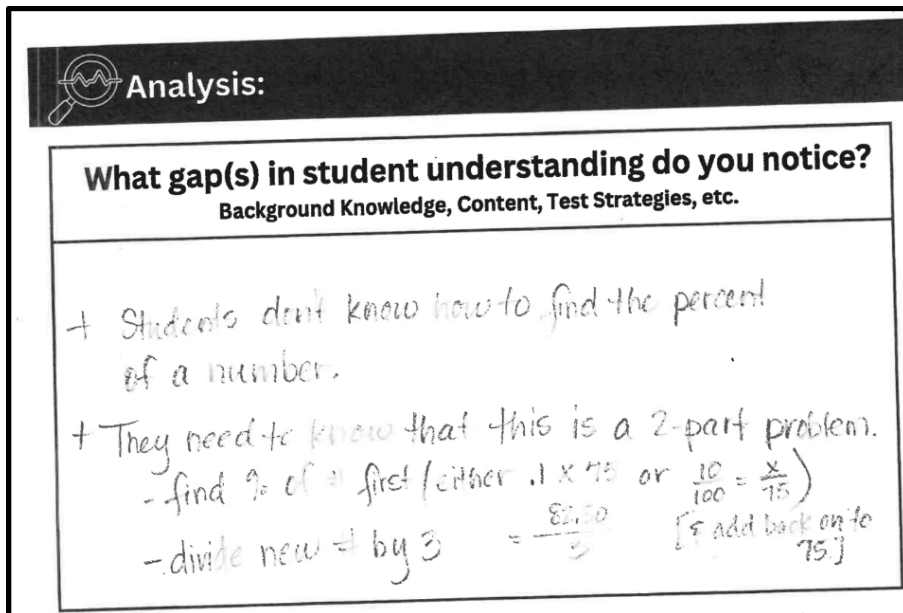 Analysis:
What gap(s) in student understanding do you notice?
Background Knowledge, Content, Test Strategies, etc.
+ Students don't know how to find the percent
of a number.
+ They need to know that this is a 2-part problem.
- find % of # first (either .1 x 75 or 10/100 = x/75)
- divide new # by 3 = 82.50/3 [& add back on to
75.]